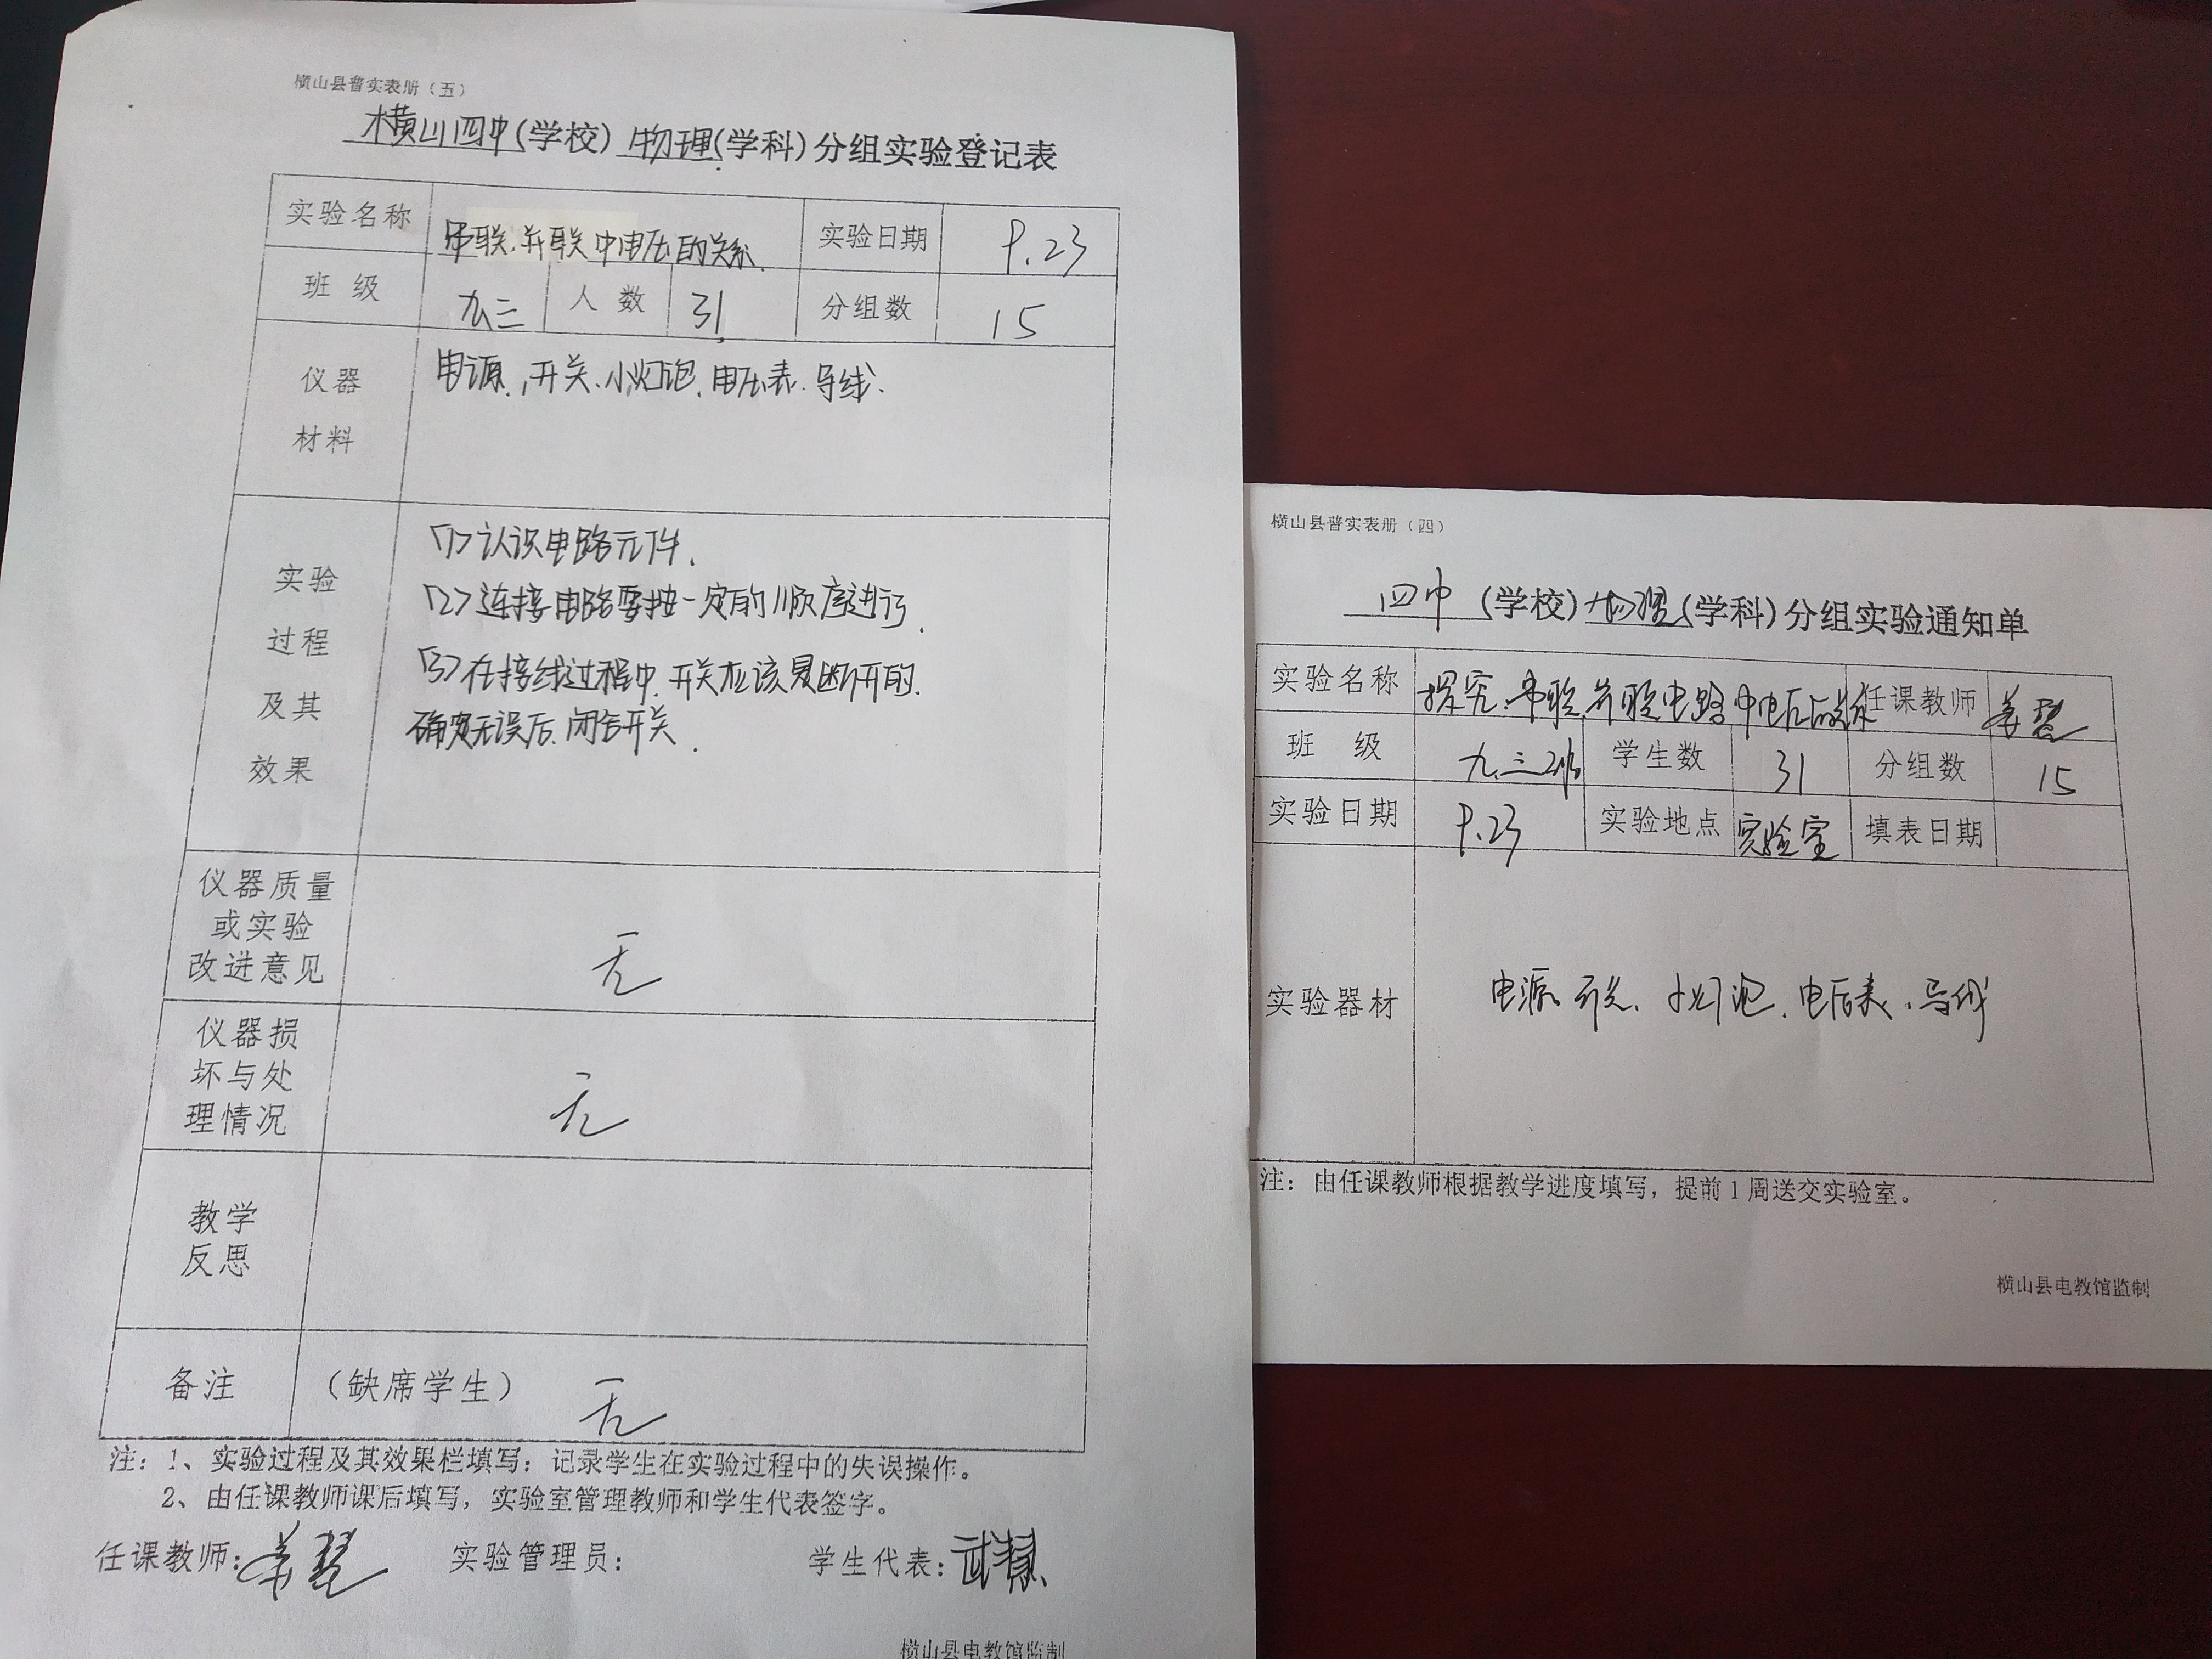 横山县普实表册（五）
横山四中(学校) 物理(学科)分组实验登记表
实验名称 串联.并联中电压的关系. 实验日期 9.23
班 级 九三 人 数 31 分组数 15
仪器
材料
电源.开关.小灯泡.电压表.导线.
实验
过程
及其
效果
<1>认识电路元件.
<2>连接电路要按一定的顺序进行.
<3>在接线过程中.开关应该是断开的.
确定无误后.闭合开关.
仪器质量
或实验
改进意见
无
仪器损
坏与处
理情况
无
教学
反思
备注 （缺席学生） 无
注：1、实验过程及其效果栏填写：记录学生在实验过程中的失误操作。
2、由任课教师课后填写，实验室管理教师和学生代表签字。
任课教师： 实验管理员： 学生代表：武
横山县电教馆监制
横山县普实表册（四）
四中 (学校) 物理(学科)分组实验通知单
实验名称 探究.串联.并联电路中电压的关系 任课教师
班 级 九.三班 学生数 31 分组数 15
实验日期 9.23 实验地点 实验室 填表日期
实验器材 电源.开关.小灯泡.电压表.导线
注：由任课教师根据教学进度填写，提前1周送交实验室。
横山县电教馆监制